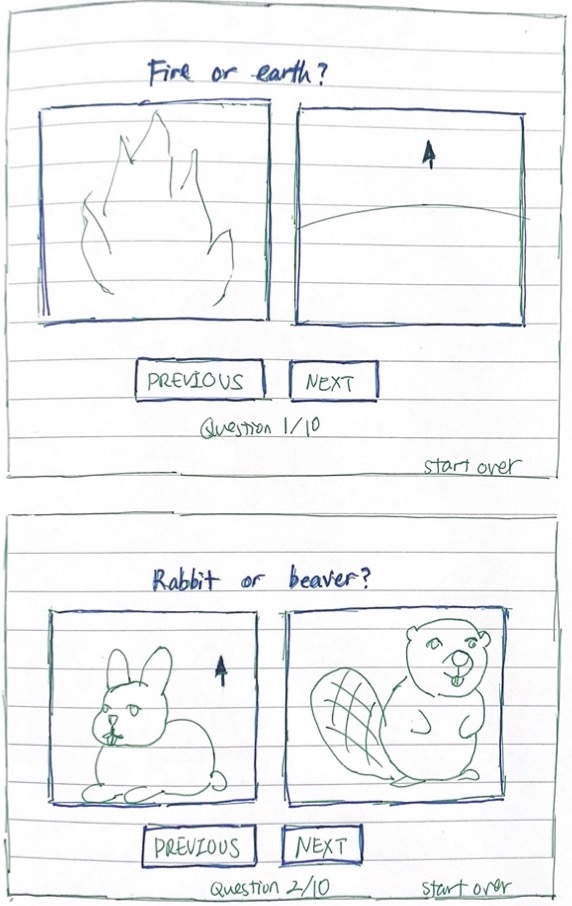 Fire or earth?
PREVIOUS NEXT
Question 1/10
start over
Rabbit or beaver?
PREVIOUS NEXT
Question 2/10 start over